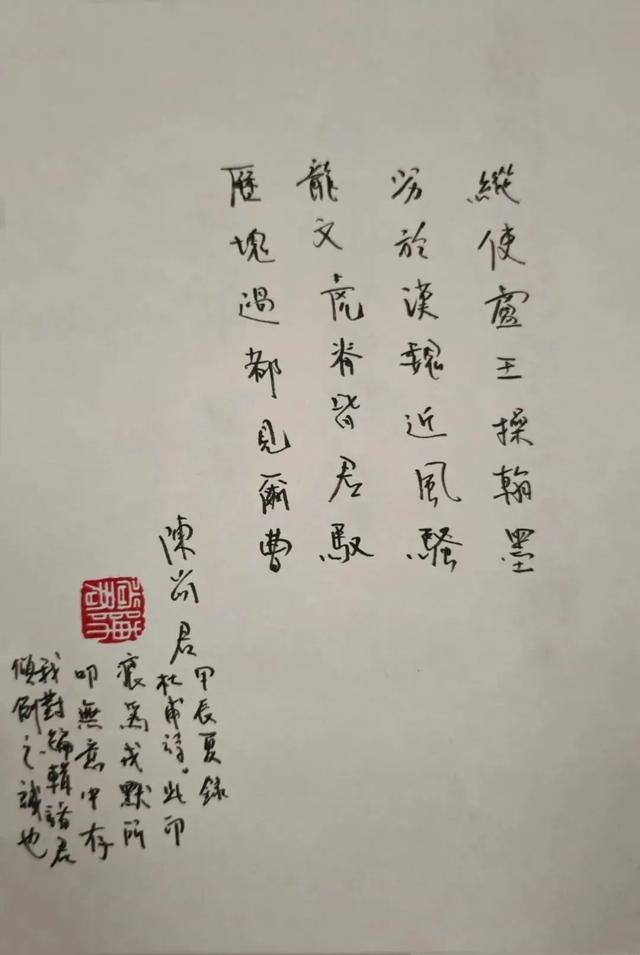 縱使盧王操翰墨
劣於漢魏近風騷
龍文虎脊皆君馭
歷塊過都見爾曹
陳尚君
甲辰夏錄
杜甫詩。此印
痕爲戎默所
叩無意中存
我對編輯諸君
傾倒之誠也